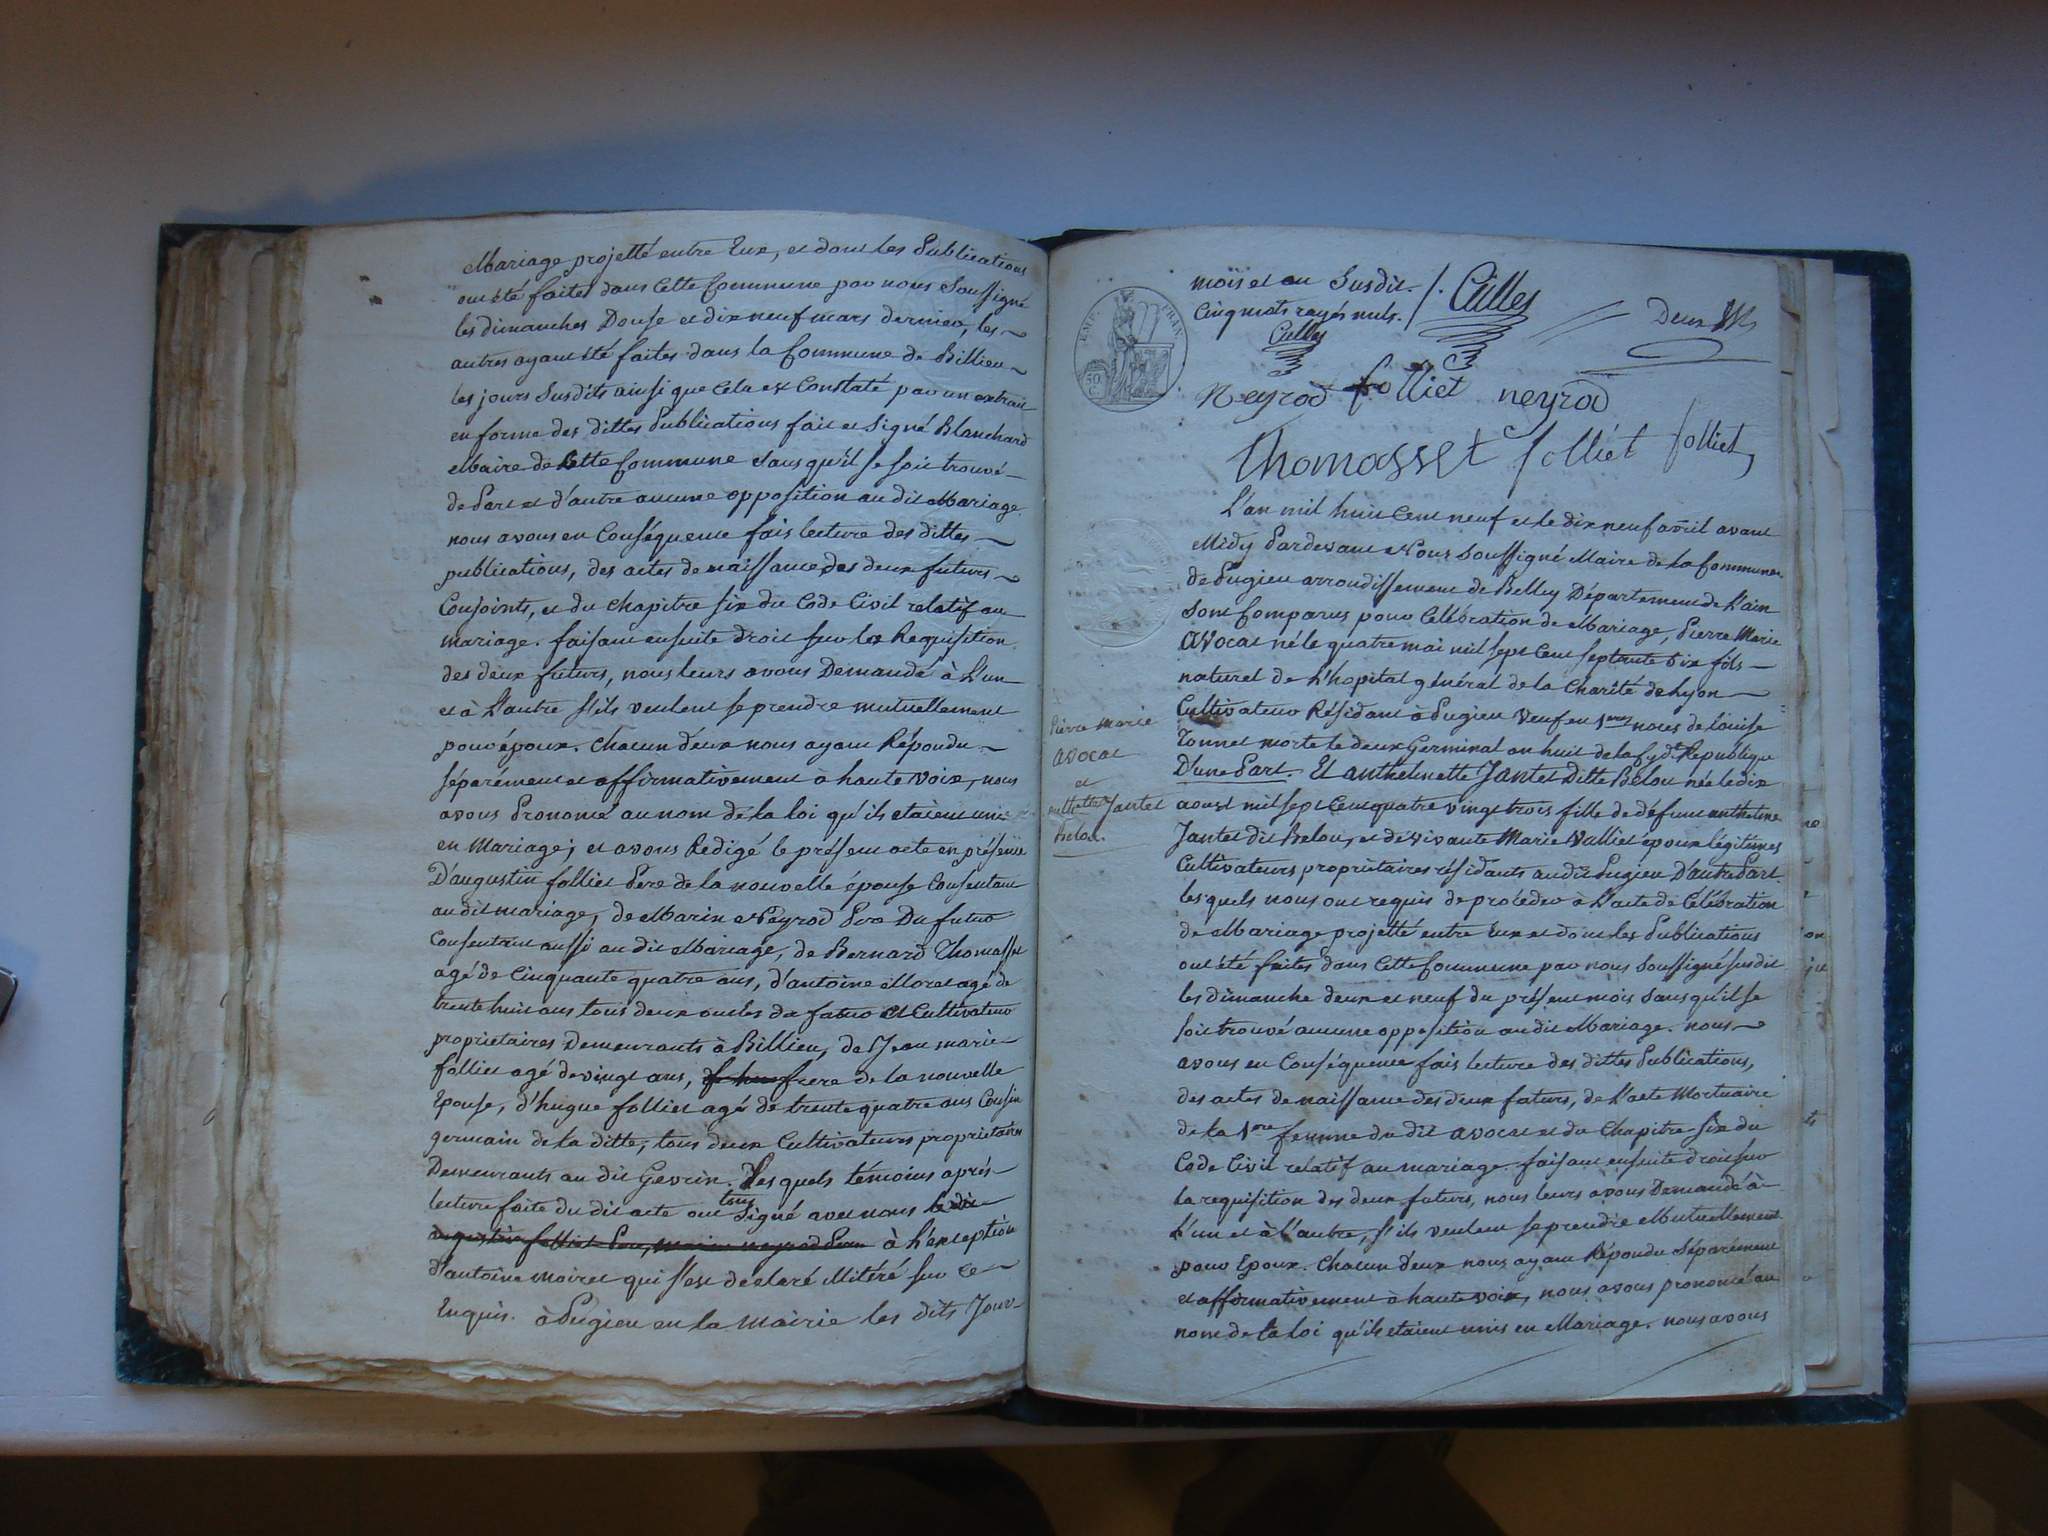 Mariage projetté entre Eux, et dont les Publications
ont été faites dans cette Commune par nous Soussigné
les dimanches Douse et dix neuf mars dernier, les
autres ayant été faites dans la Commune de Billieu
les jours Susdits ainsi que cela est Constaté par un extrait
en forme des dittes Publications fait et signé Blanchard
Maire de cette Commune sans qu'il se soit trouvé
de Part et d'autre aucune opposition au dit Mariage.
nous avons en Conséquence fais lecture des dittes
publications, des actes de naissance des deux futurs
Conjoints, et du chapitre six du Code Civil relatif au
mariage. faisant ensuite droit sur la Requisition
des deux futurs, nous leurs avons Demandé à L'un
et à L'autre s'ils veulent se prendre mutuellement
pour époux. chacun d'eux nous ayant Répondu
séparément et affirmativement à haute voix, nous
avons Prononcé au nom de la loi qu'ils etaient unis
en Mariage; et avons Redigé le présent acte en présence
D'augustin folliet Pere de la nouvelle épouse Consentant
au dit mariage, de Marin Neyrod Pere Du futur
Consentant aussi au dit Mariage, de Bernard Thomasset
agé de Cinquante quatre ans, d'antoine Moret agé de
trente huit ans tous deux oncles du futur et Cultivateur
proprietaires Demeurants à Billieu, de Jean marie
folliet agé de vingt ans, frere de la nouvelle
Epouse, d'hugue folliet agé de trente quatre ans Cousin
germain de la ditte, tous deux Cultivateurs proprietaires
Demeurants au dit Gevrin. Les quels témoins après
lecture faite du dit acte ont tous Signé avec nous le dit
augustin folliet Pere, marin neyrod Pere à L'exception
d'antoine moiret qui s'est declaré illitéré sur ce
Enquis. à Pugieu en la Mairie les dits Jour
mois et an Susdit. /. Culles
Cinq mots rayés nuls. /
Culles
Deux
EMP. FRAN.
50 C.
Neyrod folliet neyrod
Thomasset folliet folliet
L'an mil huit Cent neuf et le dix neuf avril avant
Midy Pardevant Nous Soussigné Maire de la Commune
de Pugieu arrondissement de Belley Département de L'ain
Sont Comparus pour Célébration de Mariage, Pierre Marie
Avocat né le quatre mai mil sept Cent septante six fils
naturel de L'hopital général de la Charité de Lyon
Cultivateur Résidant à Pugieu Veuf en 1eres noces de Louise
Tonnet morte le deux Germinal an huit de la Républiqe
D'une Part. Et anthelmette Jantet Ditte Belou née le dix
aoust mil sept Cent quatre vingt trois fille de défunt anthelme
Jantet dit Belou, et de vivante Marie Valliet époux légitimes
Cultivateurs proprietaires résidants au dit Pugieu D'autre Part.
les quels nous ont requis de procéder à L'acte de Célébration
de Mariage projetté entre Eux et dont les Publications
ont été faites dans cette Commune par nous Soussigné susdit
les dimanche deux et neuf du présent mois sans qu'il se
soit trouvé aucune opposition au dit Mariage. nous
avons en Conséquence fais lecture des dittes Publications,
des actes de naissance des deux futurs, de L'acte Mortuaire
de la 1ere femme du dit avocat et du Chapitre Six du
Code Civil relatif au mariage. faisant ensuite droit sur
la requisition des deux futurs, nous leurs avons Demandé à
L'un et à L'autre, s'ils veulent se prendre Mutuellement
pour Epoux. Chacun d'eux nous ayant Répondu Séparément
et affirmativement à haute voix, nous avons prononcé au
nom de la loi qu'ils etaient unis en Mariage. nous avons
Pierre Marie
Avocat
et
anthelmette Jantet
Belou.